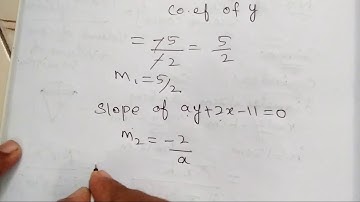 co.ef of y
= -5/-2 = 5/2
m₁ = 5/2
slope of ay+2x-11=0
m₂ = -2/a